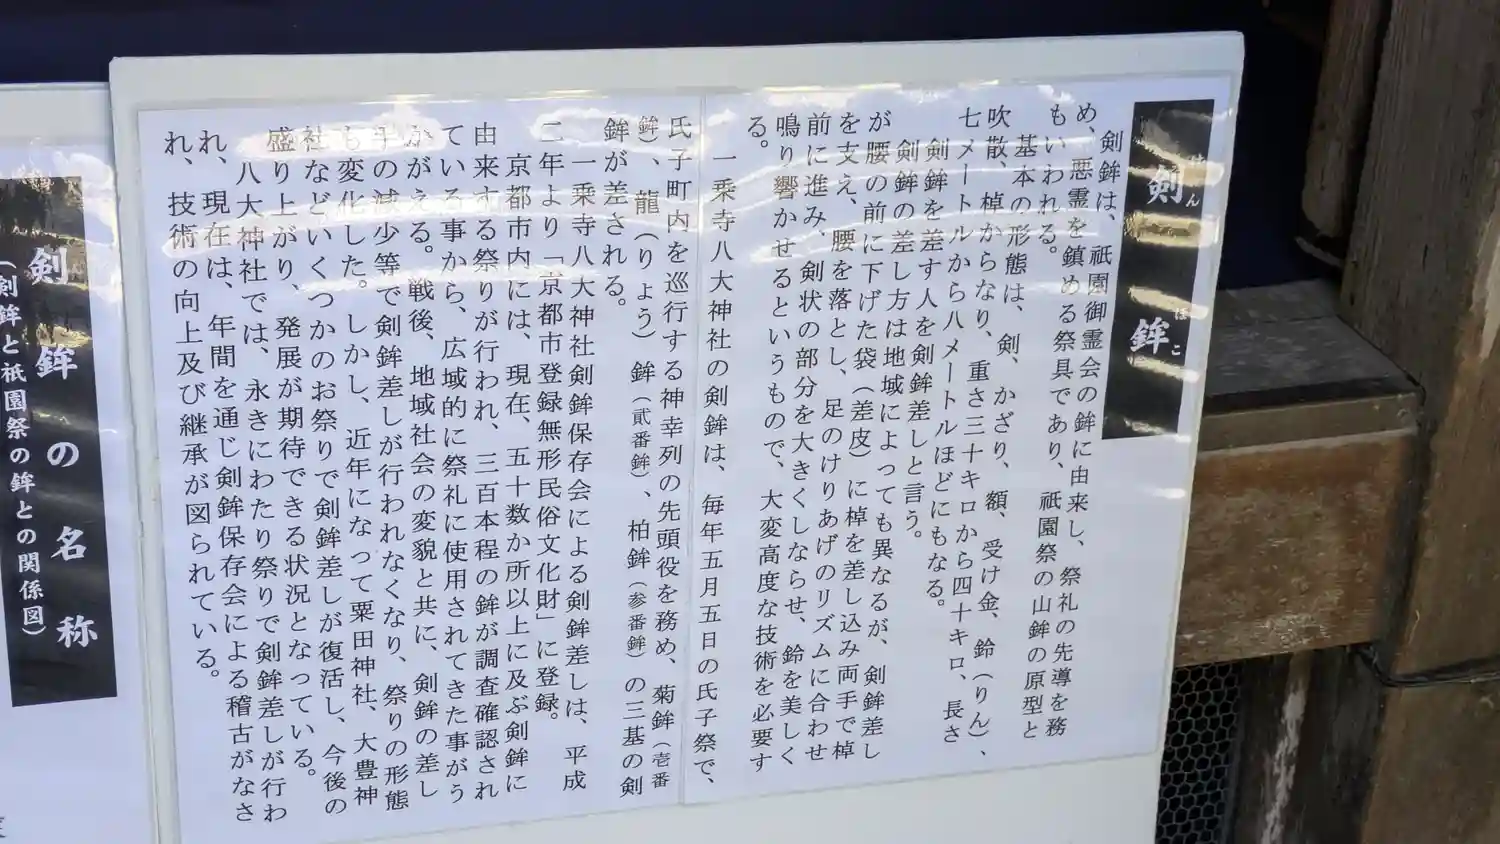 剣鉾
けん ほこ
剣鉾は、祇園御霊会の鉾に由来し、祭礼の先導を務
め、悪霊を鎮める祭具であり、祇園祭の山鉾の原型と
もいわれる。
基本の形態は、剣、かざり、額、受け金、鈴(りん)、
吹散、棹からなり、重さ三十キロから四十キロ、長さ
七メートルから八メートルほどにもなる。
剣鉾を差す人を剣鉾差しと言う。
剣鉾の差し方は地域によっても異なるが、剣鉾差し
が腰の前に下げた袋(差皮)に棹を差し込み両手で棹
を支え、腰を落とし、足のけりあげのリズムに合わせ
前に進み、剣状の部分を大きくしならせ、鈴を美しく
鳴り響かせるというもので、大変高度な技術を必要す
る。
一乗寺八大神社の剣鉾は、毎年五月五日の氏子祭で、
氏子町内を巡行する神幸列の先頭役を務め、菊鉾(壱番
鉾)、龍(りょう)鉾(貳番鉾)、柏鉾(参番鉾)の三基の剣
鉾が差される。
一乗寺八大神社剣鉾保存会による剣鉾差しは、平成
二年より「京都市登録無形民俗文化財」に登録。
京都市内には、現在、五十数か所以上に及ぶ剣鉾に
由来する祭りが行われ、三百本程の鉾が調査確認され
ている事から、広域的に祭礼に使用されてきた事がう
かがえる。戦後、地域社会の変貌と共に、剣鉾の差し
手の減少等で剣鉾差しが行われなくなり、祭りの形態
も変化した。しかし、近年になって粟田神社、大豊神
社などいくつかのお祭りで剣鉾差しが復活し、今後の
盛り上がり、発展が期待できる状況となっている。
八大神社では、永きにわたり祭りで剣鉾差しが行わ
れ、現在は、年間を通じ剣鉾保存会による稽古がなさ
れ、技術の向上及び継承が図られている。
剣鉾の名称
(剣鉾と祇園祭の鉾との関係図)